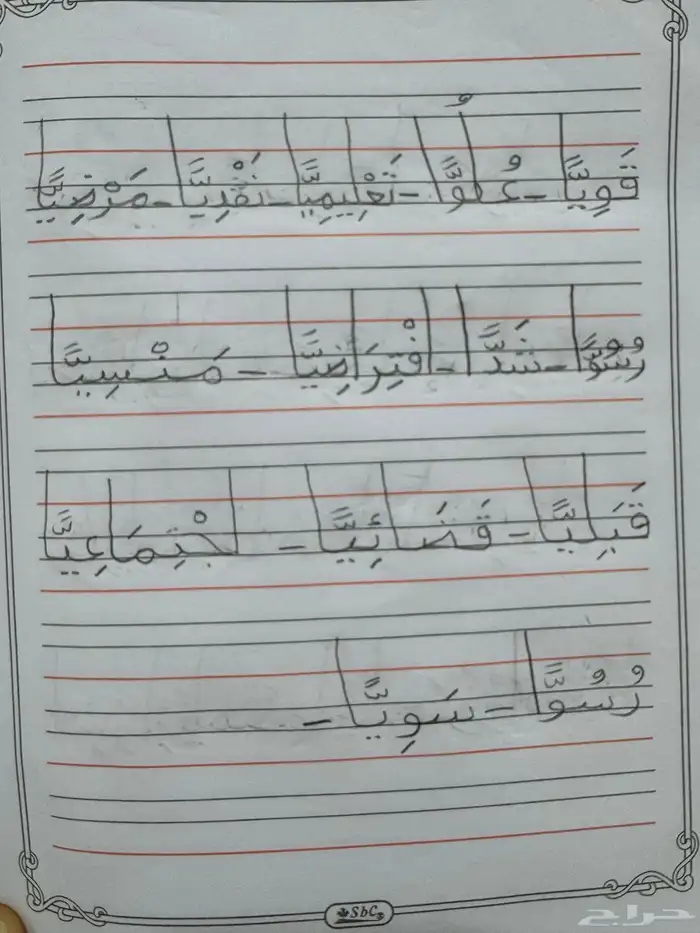 قَوِيًّا - عُلُوًّا - تَعْلِيمِيًّا - نَقْدِيًّا - مَرْضِيًّا
رُسُوًّا - شَدًّا - افْتِرَاضِيًّا - مَنْسِيًّا
قَبَلِيًّا - قَضَائِيًّا - اجْتِمَاعِيًّا
رُشُوًّا - سَوِيًّا -
SbC
حراج